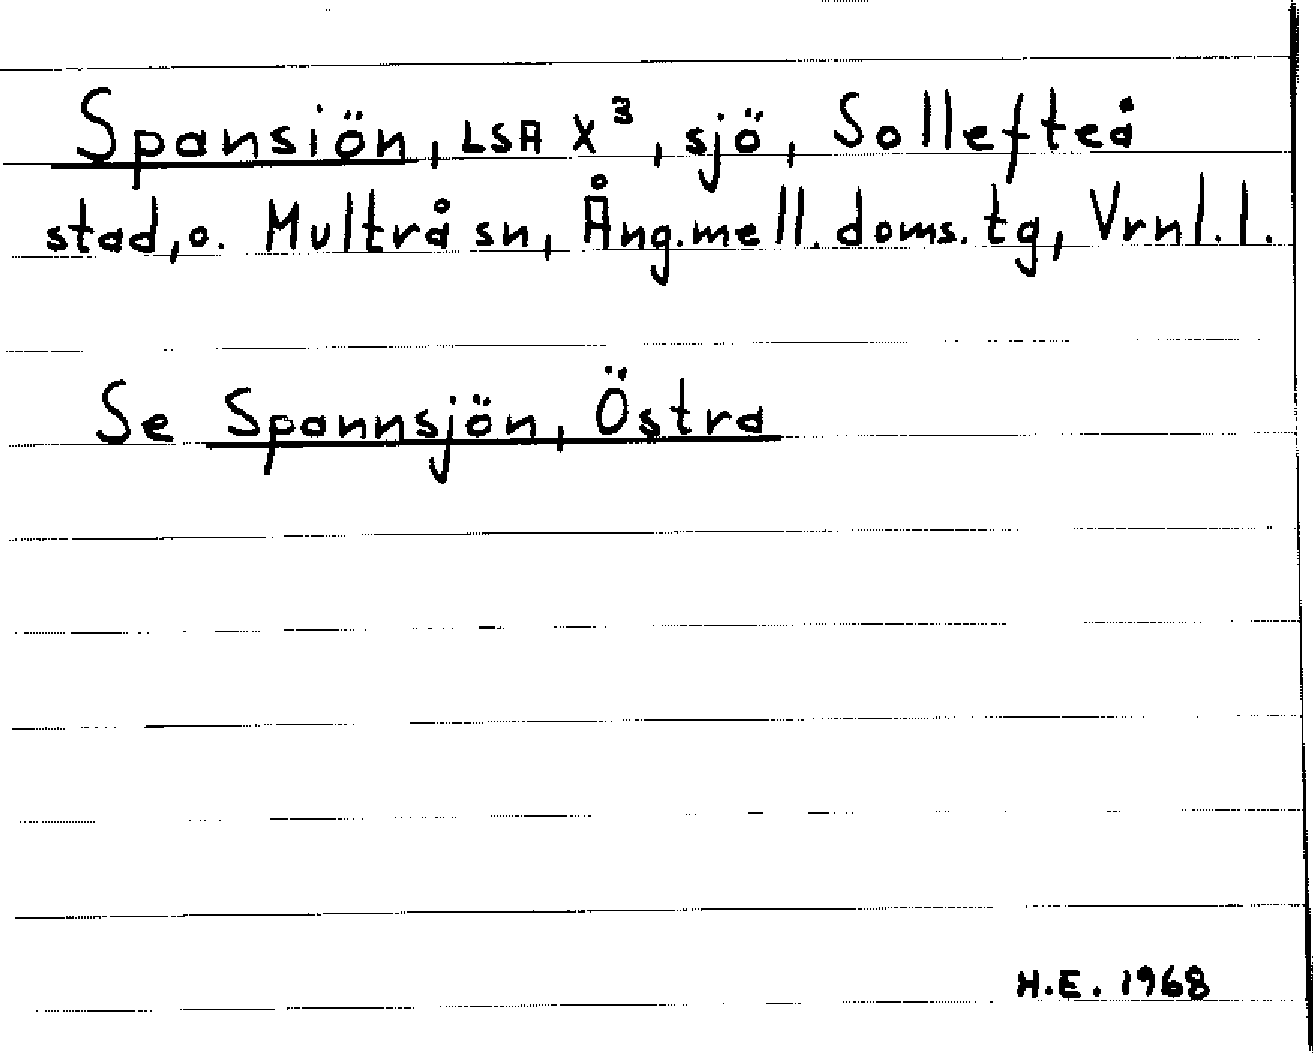 Spansiön, LSA X³, sjö, Sollefteå
stad, o. Multrå sn, Ång.mell. doms. tg, Vrnl. l.
Se Spannsjön, Östra
H.E. 1968